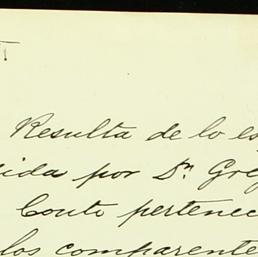 Resulta de lo es
ida por Dn Greg
Couto pertenec
los comparente